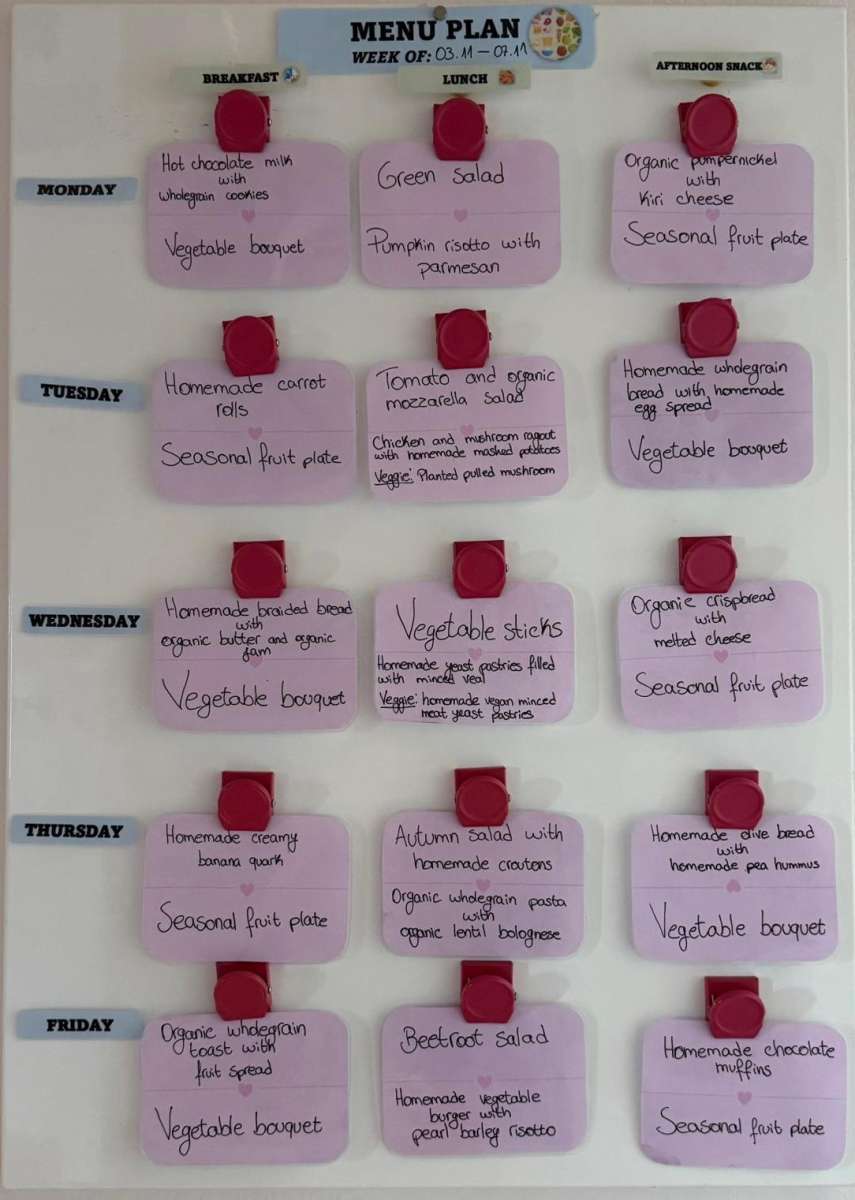 MENU PLAN
WEEK OF: 03.11 – 07.11
BREAKFAST
LUNCH
AFTERNOON SNACK
MONDAY
Hot chocolate milk
with
wholegrain cookies
Vegetable bouquet
Green Salad
Pumpkin risotto with
parmesan
Organic pumpernickel
with
Kiri cheese
Seasonal fruit plate
TUESDAY
Homemade carrot
rolls
Seasonal fruit plate
Tomato and organic
mozzarella salad
Chicken and mushroom ragout
with homemade mashed potatoes
Veggie: Planted pulled mushroom
Homemade wholegrain
bread with homemade
egg spread
Vegetable bouquet
WEDNESDAY
Homemade braided bread
with
organic butter and organic
jam
Vegetable bouquet
Vegetable sticks
Homemade yeast pastries filled
with minced veal
Veggie: homemade vegan minced
meat yeast pastries
Organic crispbread
with
melted cheese
Seasonal fruit plate
THURSDAY
Homemade creamy
banana quark
Seasonal fruit plate
Autumn salad with
homemade croutons
Organic wholegrain pasta
with
organic lentil bolognese
Homemade olive bread
with
homemade pea hummus
Vegetable bouquet
FRIDAY
Organic wholegrain
toast with
fruit spread
Vegetable bouquet
Beetroot salad
Homemade vegetable
burger with
pearl barley risotto
Homemade chocolate
muffins
Seasonal fruit plate